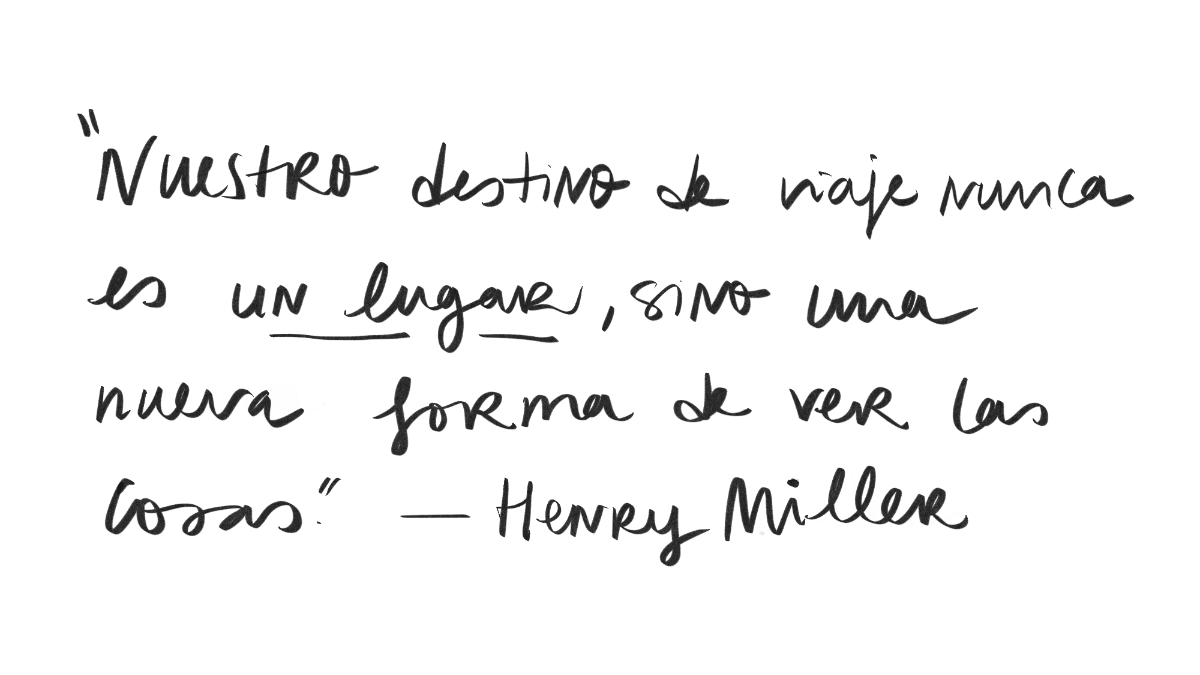 "Nuestro destino de viaje nunca
es un lugar, sino una
nueva forma de ver las
cosas." — Henry Miller